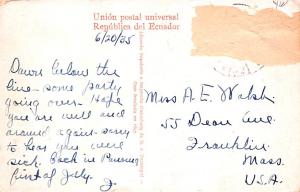 Unión postal universal
República del Ecuador
6/20/35
Down below the
line - some party
going over. Hope
you are well and
around again - sorry
to hear you were
sick. Back in Panama
first of July. J.
Miss A. E. Walsh
55 Dean Ave.
Franklin
Mass.
U.S.A.